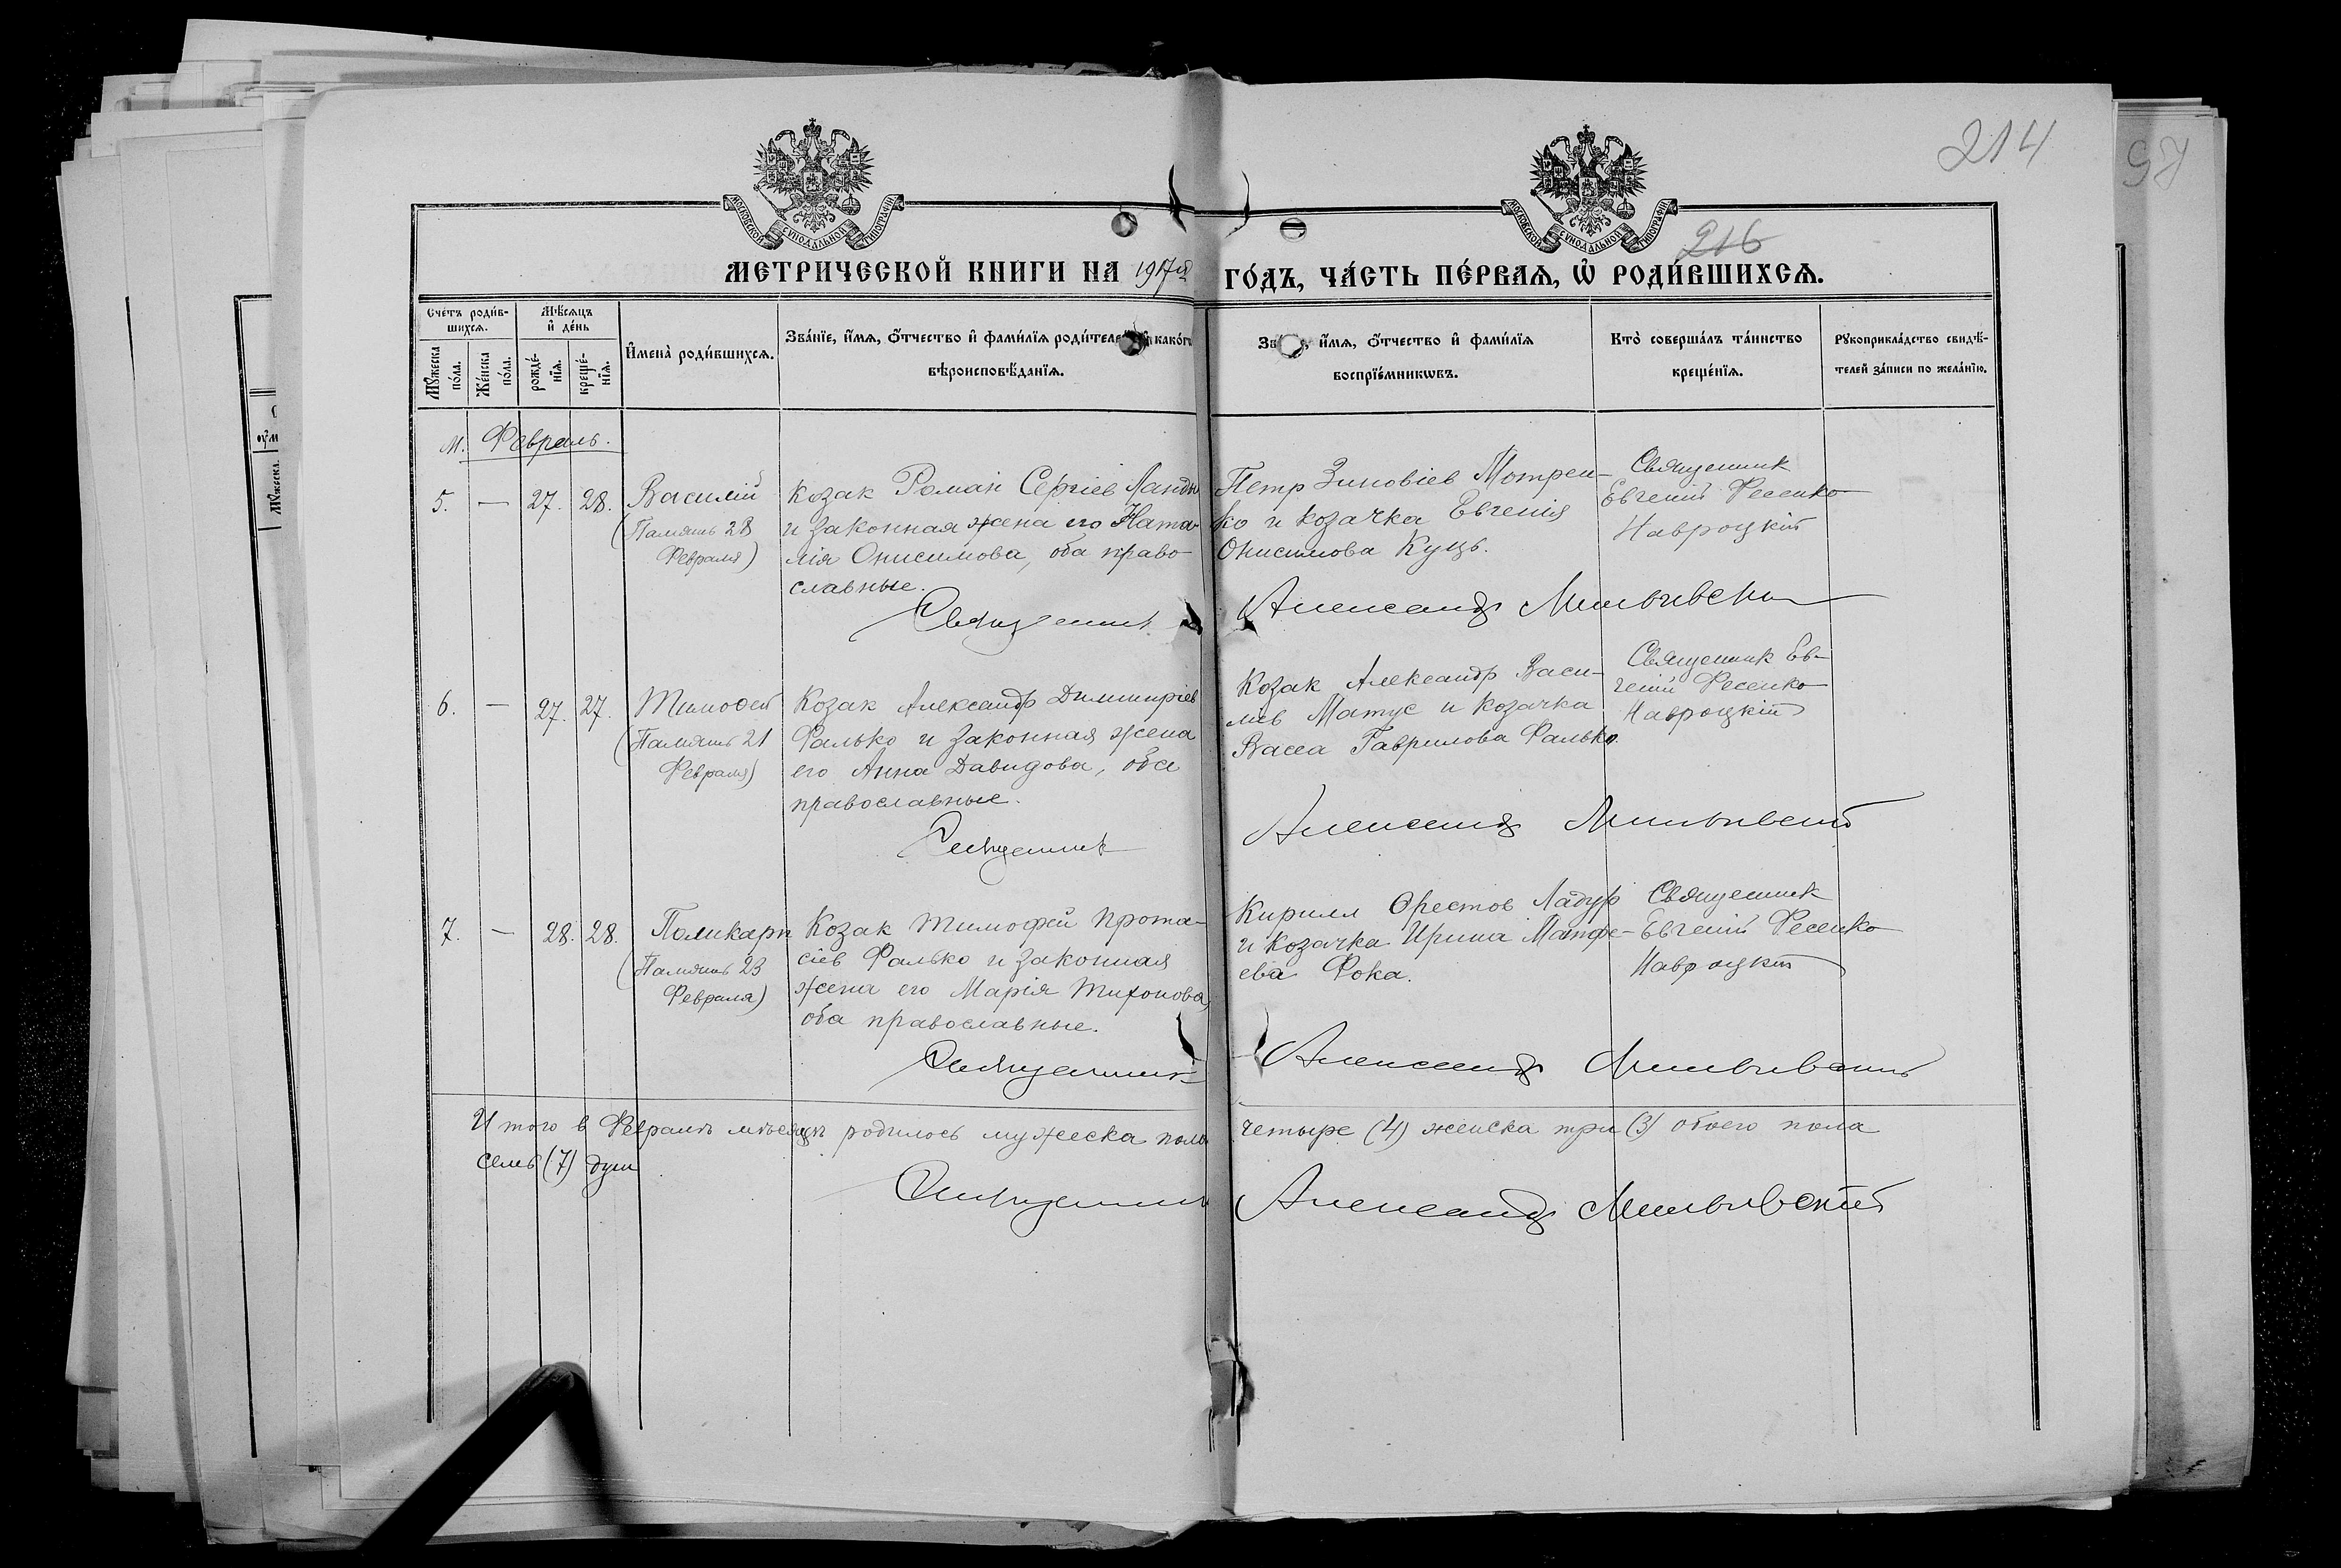 214
97
216
МОСКОВСКОЙ СѴНОДАЛЬНОЙ ТИПОГРАФІИ
МОСКОВСКОЙ СѴНОДАЛЬНОЙ ТИПОГРАФІИ
МЕТРИЧЕСКОЙ КНИГИ НА 1917й ГО́ДЪ, ЧА́СТЬ ПЕ́РВАѦ, Ѿ РОДИ́ВШИХСѦ.
Сче́тъ роди́в-
шихсѧ.
Мѣ́сѧцъ
и҆ де́нь
Мꙋ́жеска
по́ла.
Же́нска
по́ла.
рожде́-
нїѧ.
креще́-
нїѧ.
И҆мена̀ роди́вшихсѧ.
Зва́нїе, и҆́мѧ, ѻ҆́тчество и҆ фами́лїѧ роди́телей, и҆ како́гѡ
вѣроисповѣ́данїѧ.
и҆́мѧ, ѻ҆́тчество и҆ фами́лїѧ
воспрїе́мникѡвъ.
Кто̀ соверша́лъ та́инство
креще́нїѧ.
Рꙋкоприкла́дство свидѣ́-
телей за́писи по жела́нїю.
М. Февраль.
5. — 27. 28. Василій
(Память 28
Февраля)
Козак Роман Сергіев
и законная жена его Ната-
лія Онисимова, оба право-
славные.
Петр Зиновіев Мотрен-
ко и козачка Евгенія
Онисимова Куць.
Священник
Евгеній Фесенко
Навроцкій
Священник Александр
6. — 27. 27. Тимофей
(Память 21
Февраля)
Козак Александр Димитріев
Фалько и законная жена
его Анна Давидова, оба
православные.
Козак Александр Васи-
лiев Матус и козачка
Васса Гаврилова Фалько.
Священник Ев-
геній Фесенко
Навроцкій
Священник Александр
7. — 28. 28. Поликарп
(Память 23
Февраля)
Козак Тимофей Прота-
сіев Фалько и законная
жена его Марія Тихонова,
оба православные.
Кирилл Орестов Ладур
и козачка Ирина Матфе-
ева Фока.
Священник
Евгеній Фесенко
Навроцкій
Священник Александр
Итого в Феврале месяце родилось мужеска пола четыре (4) женска три (3) обоего пола
семь (7) душ
Священник Александр